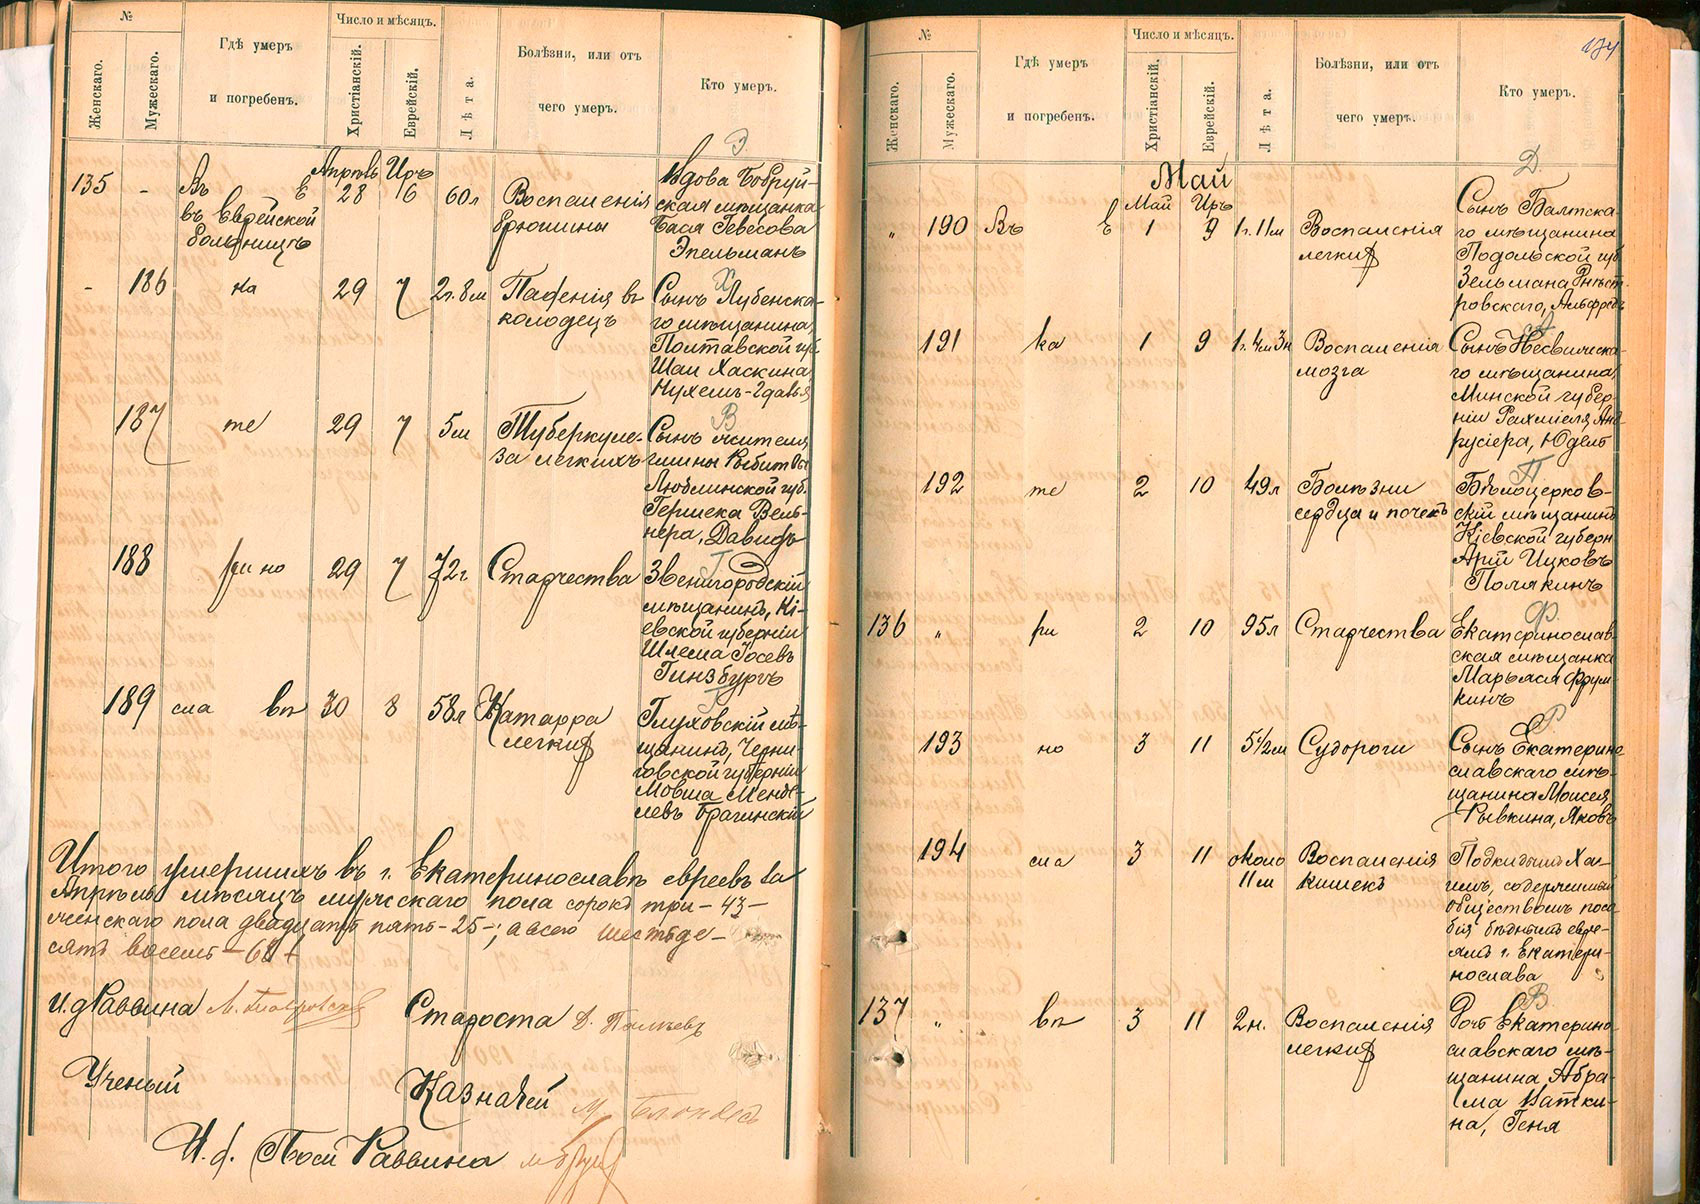 №
Женскаго.
Мужескаго.
Гдѣ умеръ
и погребенъ.
Число и мѣсяцъ.
Христіанскій.
Еврейскій.
Лѣта.
Болѣзни, или отъ
чего умеръ.
Кто умеръ.
Э.
Апрѣль Иръ
135 - Въ Е 28 6 60л Воспаленія Вдова Бобруй-
въ Еврейской брюшины ская мѣщанка
больницѣ Бася Гевесова
Эпельманъ
Х
- 186 ка 29 7 2г. 8м Паденія въ Сынъ Лубенска-
колодецъ го мѣщанина,
Полтавской губ.
Шаи Хаскина
Нухемъ-
В
187 те 29 7 5м Туберкуле- Сынъ жителя
за легкихъ гмины
Люблинской губ.
Гершека Вель-
нера, Давидъ
Г
188 ри но 29 7 72г Старчества Звенигородскій
мѣщанинъ, Кі-
евской губерніи
Шлема Іосевъ
Гинзбургъ
189 сла вп 30 8 58л Катарра Глуховскій мѣ-
легкихъ щанинъ, Черни-
говской губерніи
Мовша Менде-
левъ Брагинскій
Итого умершихъ въ г. Екатеринославѣ евреевъ за
Апрѣль мѣсяцъ мужскаго пола сорокъ три - 43 -
женскаго пола двадцать пять - 25 -; а всего шестьде-
сятъ восемь - 68
И. д Раввина Староста
Ученый Казначей
И. д. Пом Раввина
134
№
Женскаго.
Мужескаго.
Гдѣ умеръ
и погребенъ.
Число и мѣсяцъ.
Христіанскій.
Еврейскій.
Лѣта.
Болѣзни, или отъ
чего умеръ.
Кто умеръ.
Д.
Май
Май Иръ
„ 190 Въ Е 1 9 1г. 11м Воспаленія Сынъ Балтска-
легкихъ го мѣщанина
Подольской губ
Зельмана
ровскаго, Альфредъ
А.
191 ка 1 9 1г. 4м 3н Воспаленія Сынъ Несвижска-
мозга го мѣщанина,
Минской губер-
ніи Рахміеля Анд-
русіера, Юдель
П
192 те 2 10 49л Болѣзни Бѣлоцерков-
сердца и почекъ скій мѣщанинъ
Кіевской губерн
Арій Ицковъ
Полякинъ
Ф.
136 „ ри 2 10 95л Старчества Екатеринослав-
ская мѣщанка
Марьяся Фрум-
кинъ
Р
193 но 3 11 5½м Судороги Сынъ Екатерино
славскаго мѣ-
щанина Моисея
Рывкина, Яковъ
194 сла 3 11 около Воспаленія Подкидышъ Ха-
11м кишекъ имъ, содержимый
обществомъ посо-
бія бѣднымъ евре-
ямъ г. Екатери-
нослава
В.
137 „ вп 3 11 2н. Воспаленія Дочь Екатерино-
легкихъ славскаго мѣ-
щанина, Абра-
ма Ватки-
на, Геня